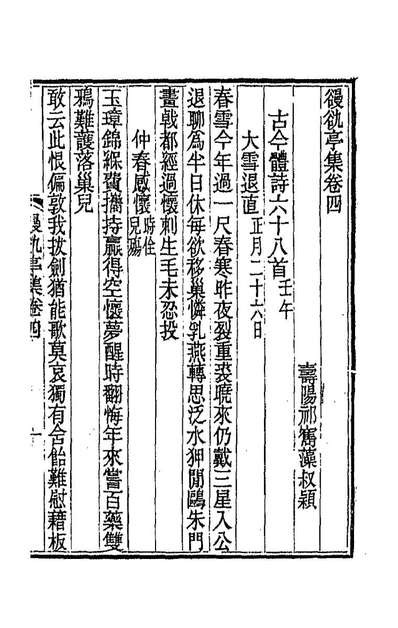 䜱𧮪亭集卷四
壽陽祁寯藻叔穎
古今體詩六十八首壬午
大雪退直正月二十六日
春雪今年過一尺春寒昨夜裂重裘曉來仍戴三星入公
退聊爲半日休每欲移巢憐乳燕轉思泛水狎閒鷗朱門
畫戟都經過懷刺生毛未忍投
仲春感懷時佺兒殤
玉璋錦褓費攜持贏得空懷夢醒時翻悔年來嘗百藥雙
鴉難護落巢兒
敢云此恨偏敦我拔劍猶能歌莫哀獨有含飴難慰藉板
亭集卷四
一